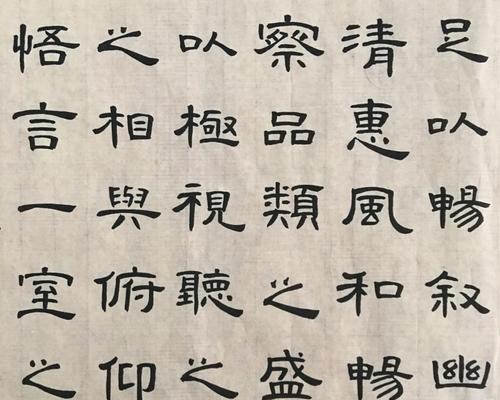 足以暢叙幽
清惠風和暢
察品類之盛
以極視聽之
之相與俯仰
悟言一室之